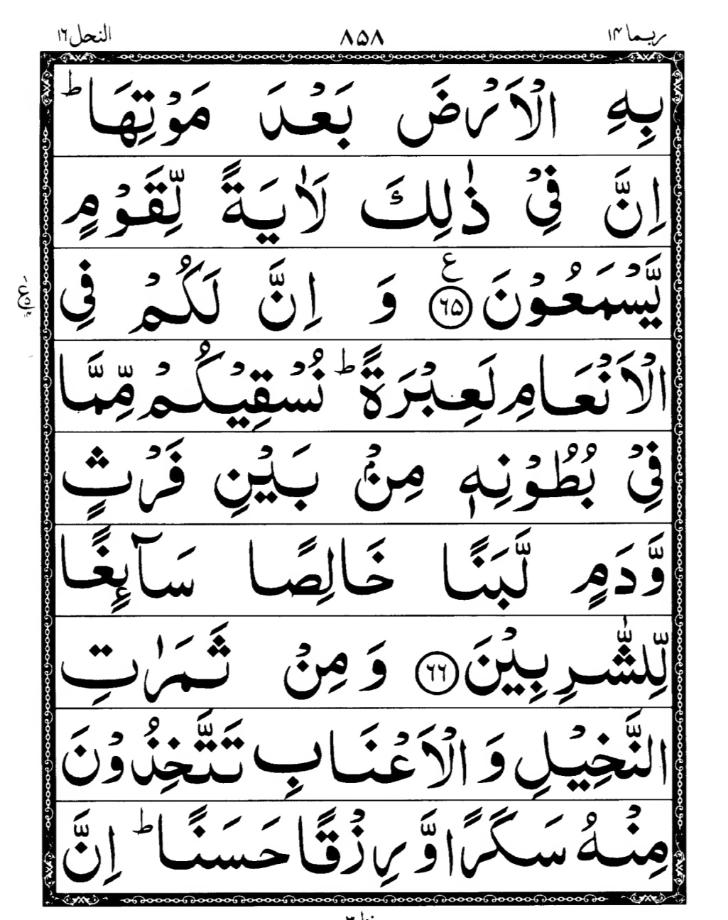 ربما ۱۴ ۸۵۸ النحل ۱۶
بِهِ الْاَرْضَ بَعْدَ مَوْتِهَا ؕ
اِنَّ فِیْ ذٰلِكَ لَاٰیَةً لِّقَوْمٍ
یَّسْمَعُوْنَ ﴿۶۵﴾ ع وَ اِنَّ لَكُمْ فِی
الْاَنْعَامِ لَعِبْرَةً ؕ نُسْقِیْكُمْ مِّمَّا
فِیْ بُطُوْنِهٖ مِنْۢ بَیْنِ فَرْثٍ
وَّدَمٍ لَّبَنًا خَالِصًا سَآىِٕغًا
لِّلشّٰرِبِیْنَ ﴿۶۶﴾ وَ مِنْ ثَمَرٰتِ
النَّخِیْلِ وَ الْاَعْنَابِ تَتَّخِذُوْنَ
مِنْهُ سَكَرًا وَّ رِزْقًا حَسَنًا ؕ اِنَّ